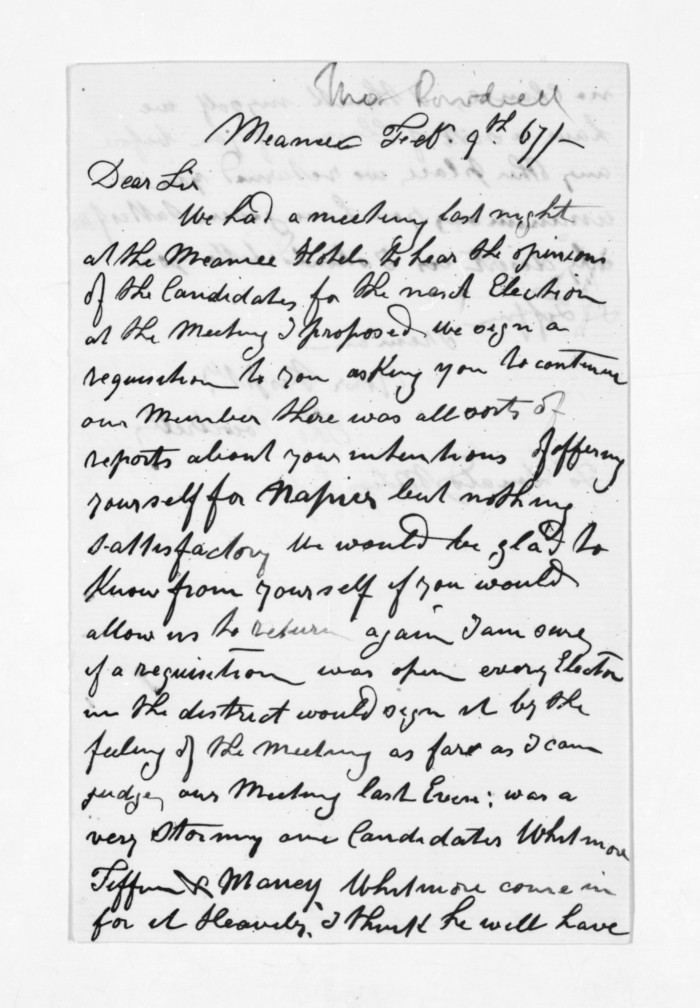 Meanee Feb 9th 67/-
Dear Sir
We had a meeting last night
at the Meanee Hotel to hear the opinions
of the Candidates for the next Election
at the Meeting I proposed we sign a
requisition to you asking you to continue
our Member there was all sorts of
reports about your intentions of offering
yourself for Napier but nothing
sattisfactory We would be glad to
Know from yourself if you would
allow us to return again I am sure
if a requisition was open every Elector
in the district would sign it by the
feeling of the Meeting as far as I can
judge, our Meeting last Even: was a
very Stormy one Candidates Whitmore
Tiffen & Maney Whitmore came in
for it Heavily, I think he will have